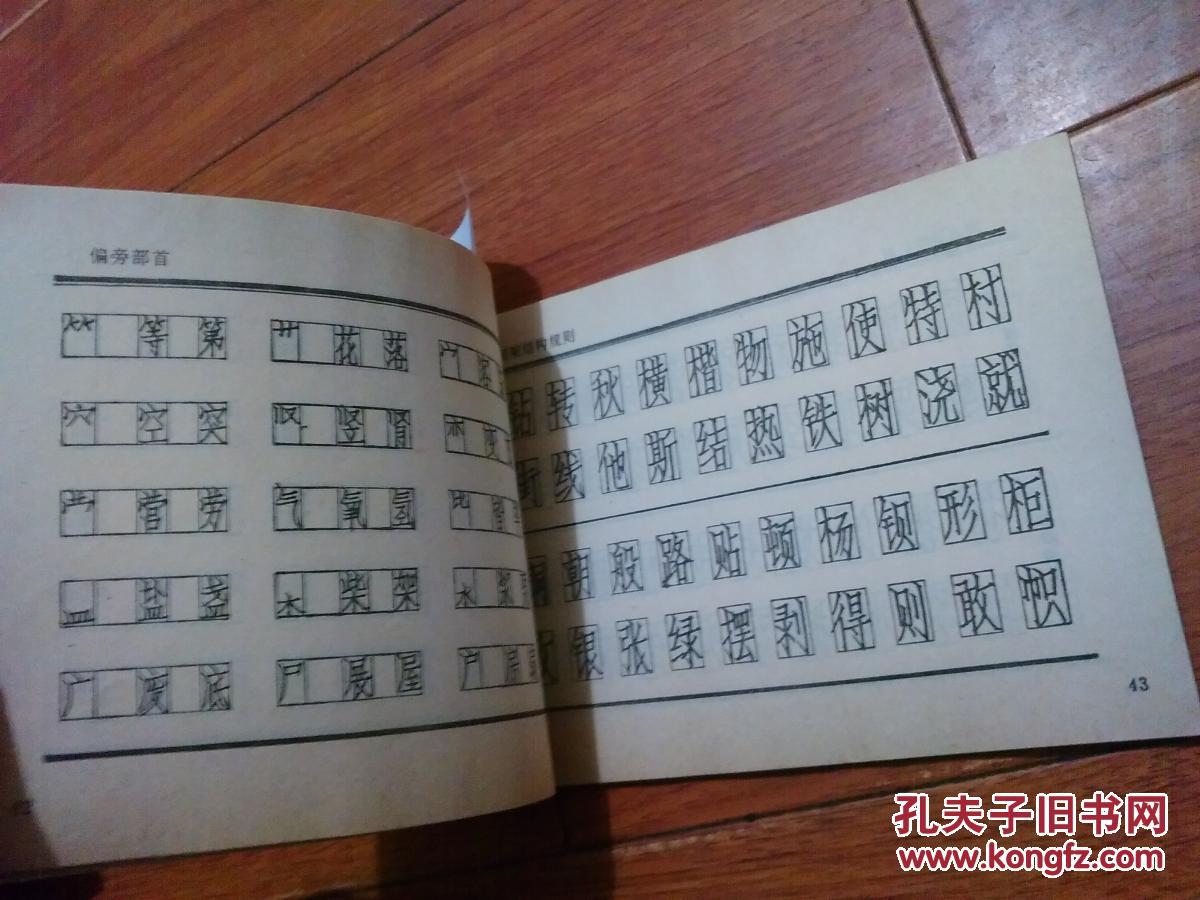 偏旁部首
⺮ 等 第 艹 花 落 宀 客
穴 空 突 竖 肾 亦 变
营 劳 气 氧 氢 比 皆
皿 盐 盏 木 柴 架 水 浆
广 度 底 尸 屋 户
结构规则
钻 转 秋 横 楷 物 施 使 特 村
线 他 斯 结 热 铁 树 浇 就
朝 般 路 贴 顿 杨 钡 形 柜
银 张 绿 摆 剥 得 则 敢 帜
43
孔夫子旧书网
www.kongfz.com